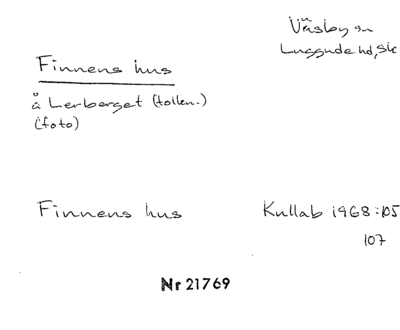 Väsby sn
Luggude hd, Sk
Finnens hus
å Lerberget (tolkn.)
(foto)
Finnens hus
Kullab 1968:105
107
Nr 21769